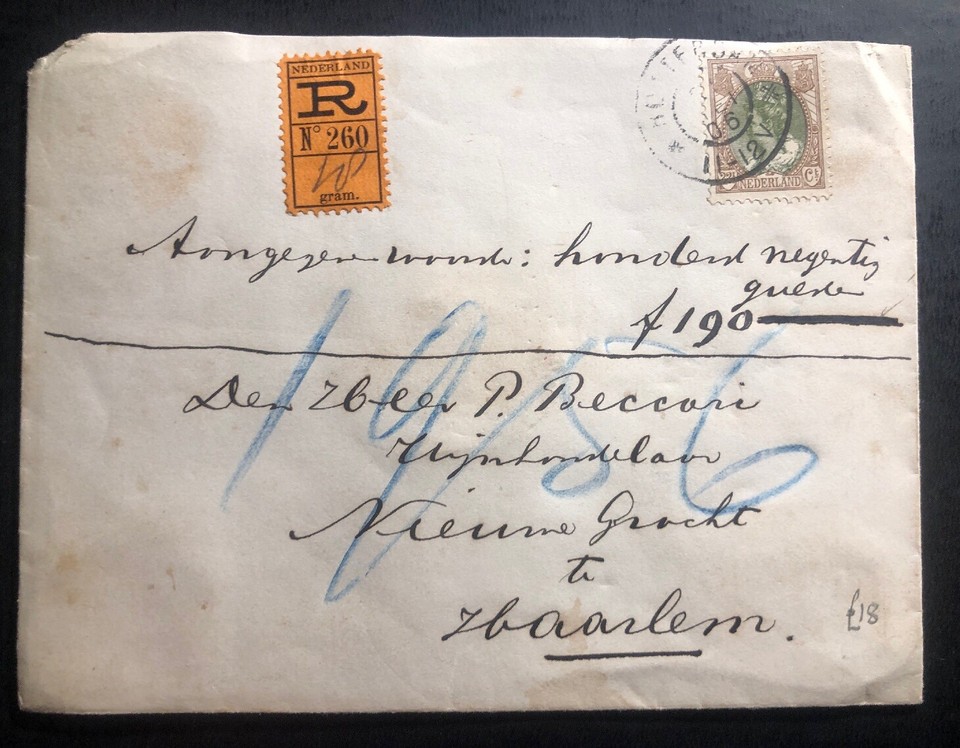 NEDERLAND
R
N° 260
18
gram.
NEDERLAND
Aangegeven waarde: honderd negentig
gulden
f 190
1956
Den Heer P. Beccari
Wijnhandelaar
Nieuwe Gracht
te
Haarlem.
£18